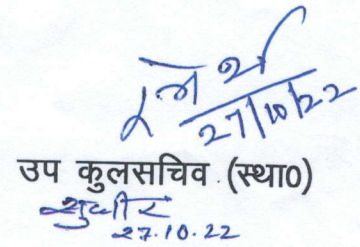 27/10/22
उप कुलसचिव (स्था0)
सुधीर
27.10.22